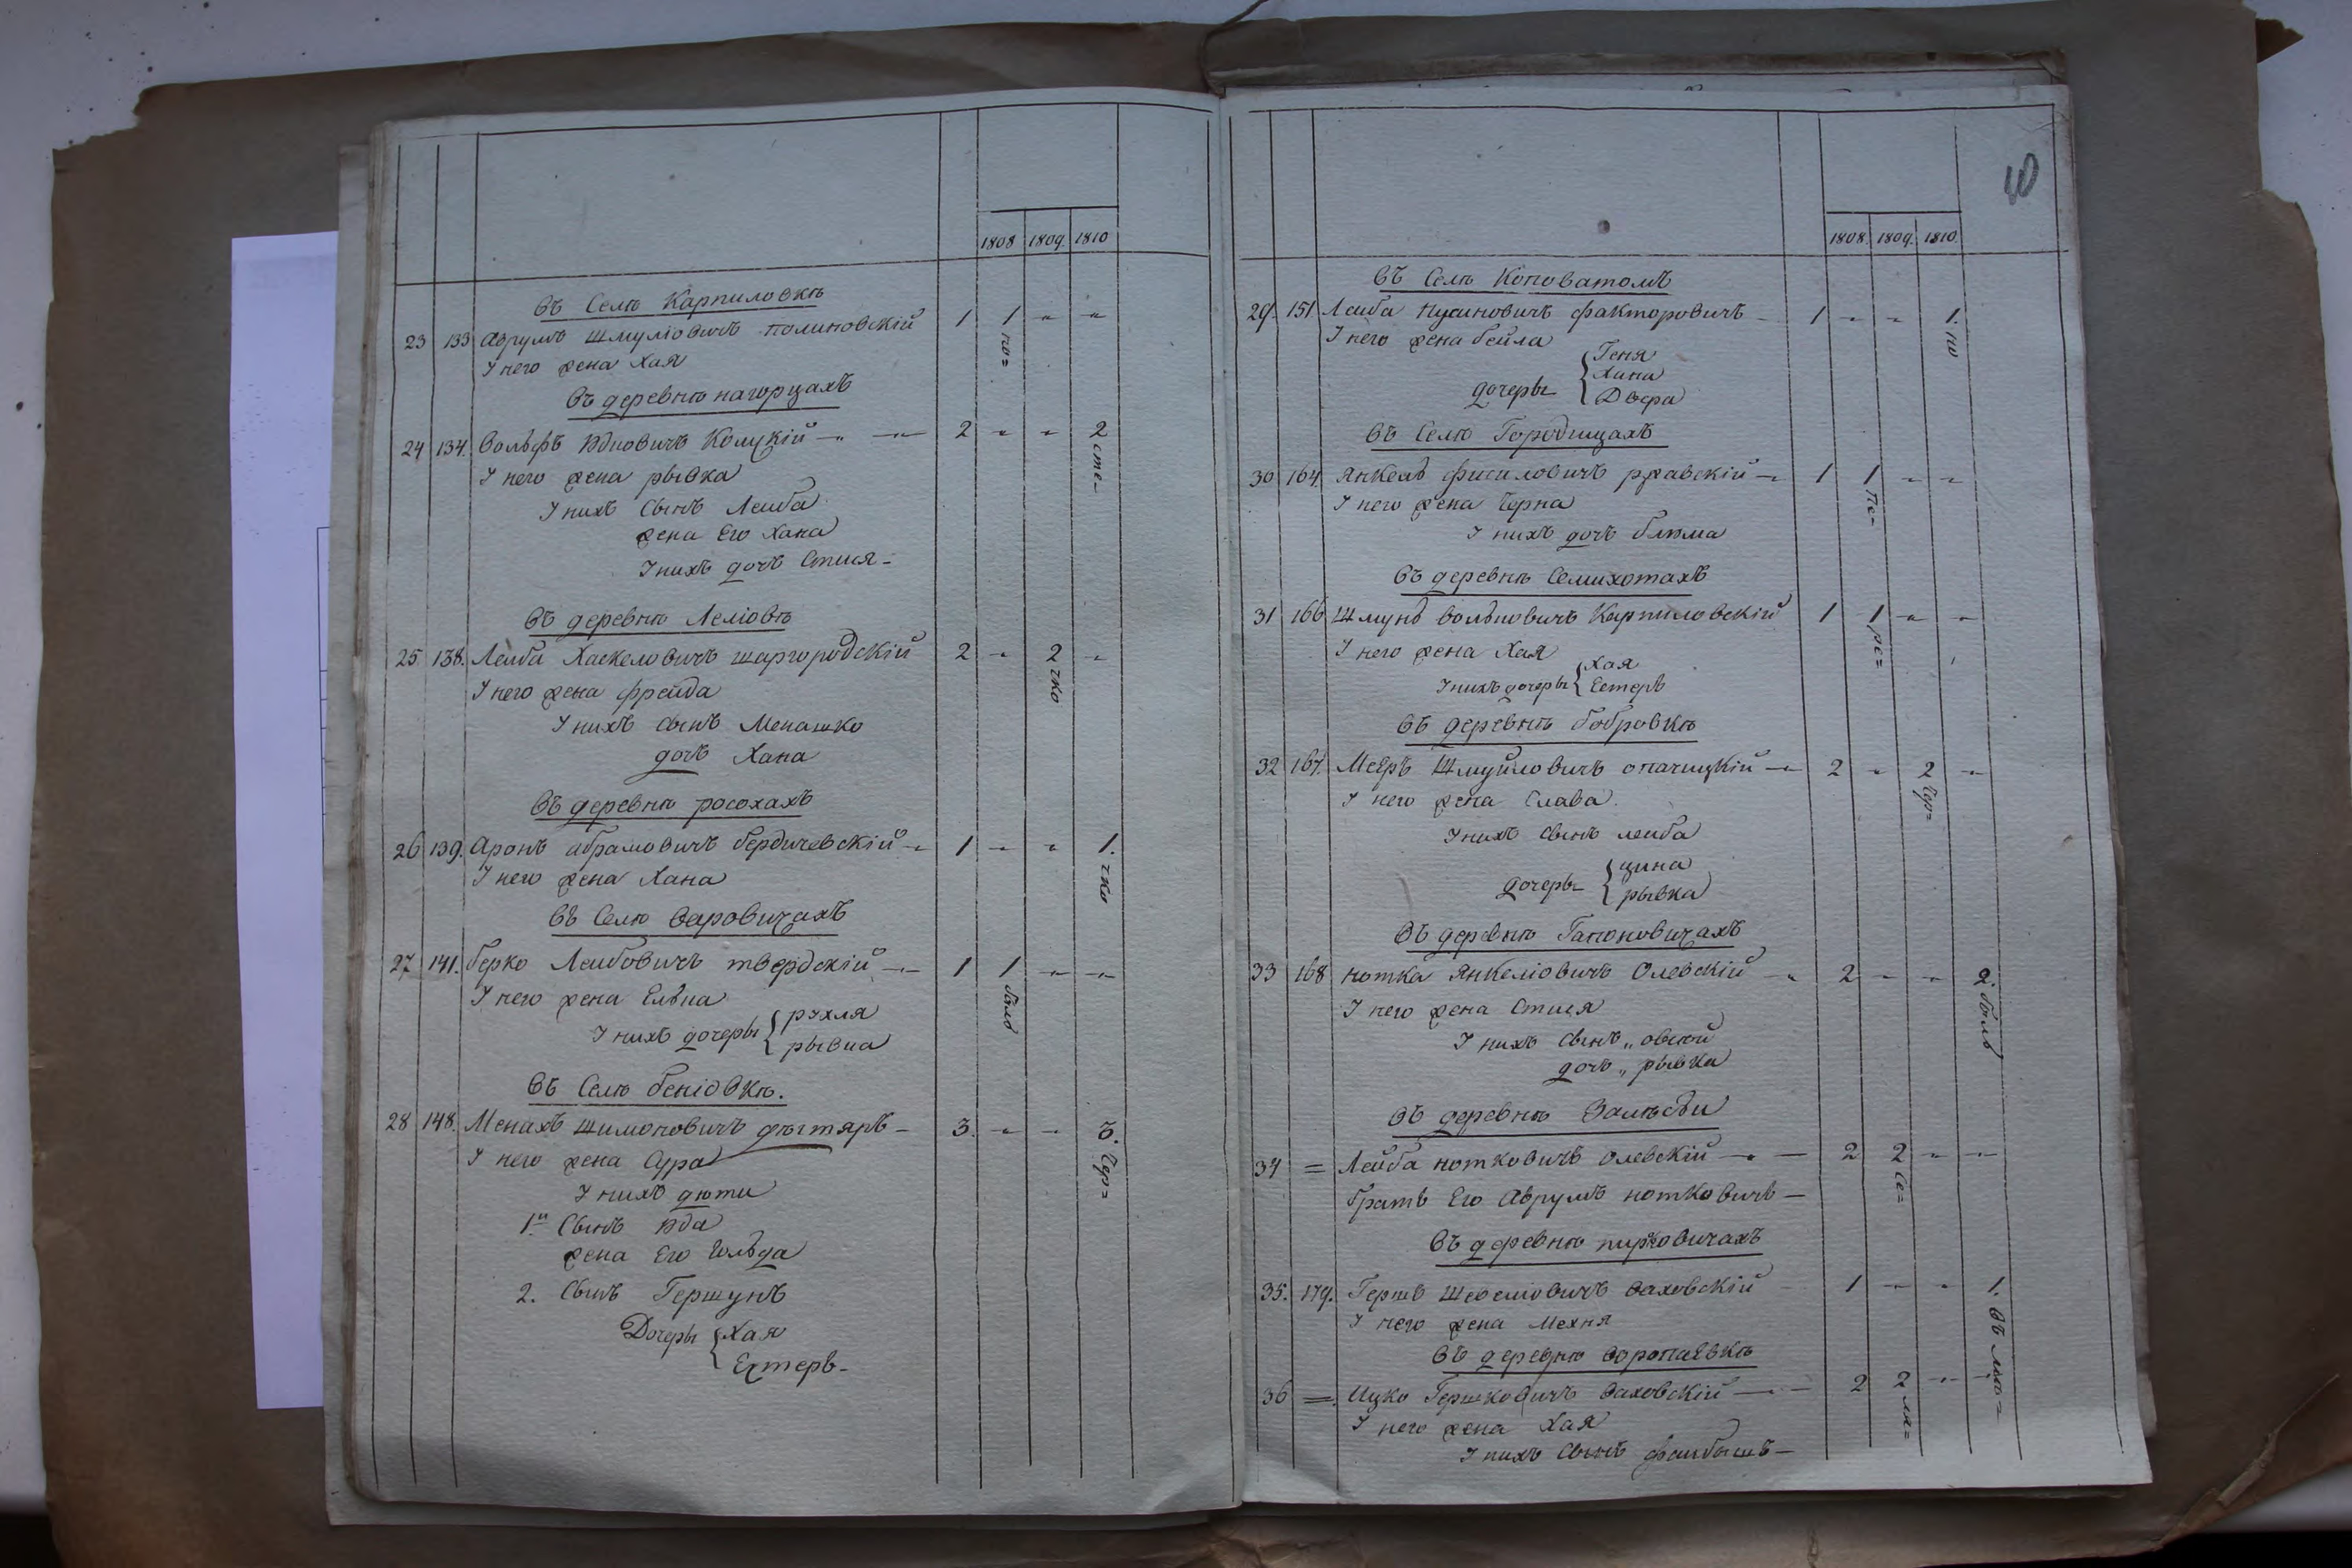 1808 1809. 1810
Въ Селѣ Карпиловкѣ
23 133 Аврумъ Шмуліовичъ полиновскій 1 1 по= " "
У него жена Хая
Въ деревнѣ нагорцахъ
24 134. Вольфъ Юдковичъ Колцкій 2 " " 2 сте=
У него жена рывка
У нихъ Сынъ Леиба
жена Его Хана
У нихъ дочъ Стися
Въ деревнѣ Леліовѣ
25 138. Леиба Хаскеловичъ шаргородскій 2 " 2 чко "
У него жена фреида
У нихъ сынъ Менашко
дочъ Хана
Въ деревнѣ росохахъ
26 139. Аронъ абрамовичъ бердичевскій 1 " " 1. чко
У него жена Хана
Въ Селѣ Варовичахъ
27 141. берко Леибовичъ твердскій 1 1 боль " "
У него жена Елька
У нихъ дочеры рухля
рывка
Въ Селѣ беніовкѣ.
28 148. Менахъ Шимоновичъ дѣгтяръ 3. " " 3. Чер=
У него жена Сура
У нихъ дѣти
1й Сынъ Юда
жена Его Гольда
2. Сынъ Гершунъ
Дочеры Хая
Естеръ
1808. 1809. 1810.
Въ Селѣ Коповатомъ
29. 151 Леиба Нусиновичъ факторовичъ 1 " " 1. по
У него жена бейла
дочеры Геня
Хана
Двера
Въ Селѣ Городищахъ
30 164. Янкель фисиловичъ ржавскій 1 1 Пе= " "
У него жена Черна
У нихъ дочъ блюма
Въ деревнѣ Семихотахъ
31 166 Шмунь вольковичъ Карпиловскій 1 1 ре= " "
У него жена Хая
У нихъ дочеры Хая
Естеръ
Въ деревнѣ бобровкѣ
32 167. Мееръ Шмуйловичъ опачицкій 2 " 2 Чер= "
У него жена Слава.
У нихъ Сынъ леиба
дочеры цина
рывка
Въ деревнѣ Гапоновичахъ
33 168 нотка Янкеліовичъ Олевскій 2 " " 2. боль
У него жена Стися
У нихъ Сынъ " овсей
дочъ " рывка
Въ деревнѣ Залѣсьи
34 = Лейба нотковичъ Олевскій 2 2 Се= " "
братъ Его Аврумъ нотковичъ
Въ деревнѣ пирковичахъ
35. 179. Гершъ ШевеліовичъВаховскій 1 " " 1. Въ лѣс=
У него жена Мехня
Въ деревнѣ воропаевкѣ
36 = Ицко Гершковичъ Ваховскій 2 2 ля= " "
У него жена Хая
У нихъ Сынъ фаибышъ